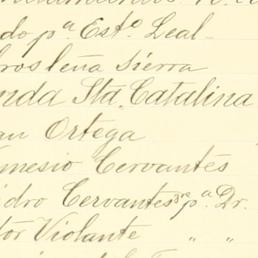 do p.ª Est.º Leal
Sierra
nda Sta. Catalina
an Ortega
mesio Cervantes
idro Cervantes p.ª Dr.
tor Violante " "